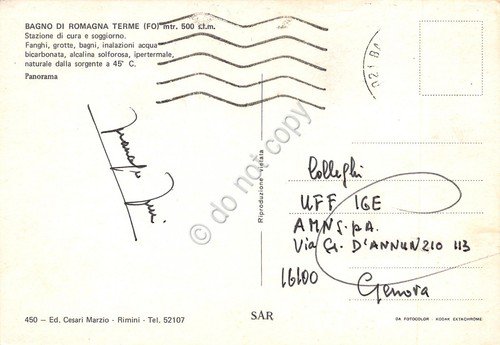 BAGNO DI ROMAGNA TERME (FO) mtr. 500 s.l.m.
Stazione di cura e soggiorno.
Fanghi, grotte, bagni, inalazioni acqua
bicarbonata, alcalina solforosa, ipertermale,
naturale dalla sorgente a 45° C.
Panorama
do not copy
Riproduzione vietata
Colleghi
UFF IGE
AMN S.p.A.
Via G. D'ANNUNZIO 113
16100
Genova
450 — Ed. Cesari Marzio - Rimini - Tel. 52107
SAR
DA FOTOCOLOR - KODAK EKTACHROME